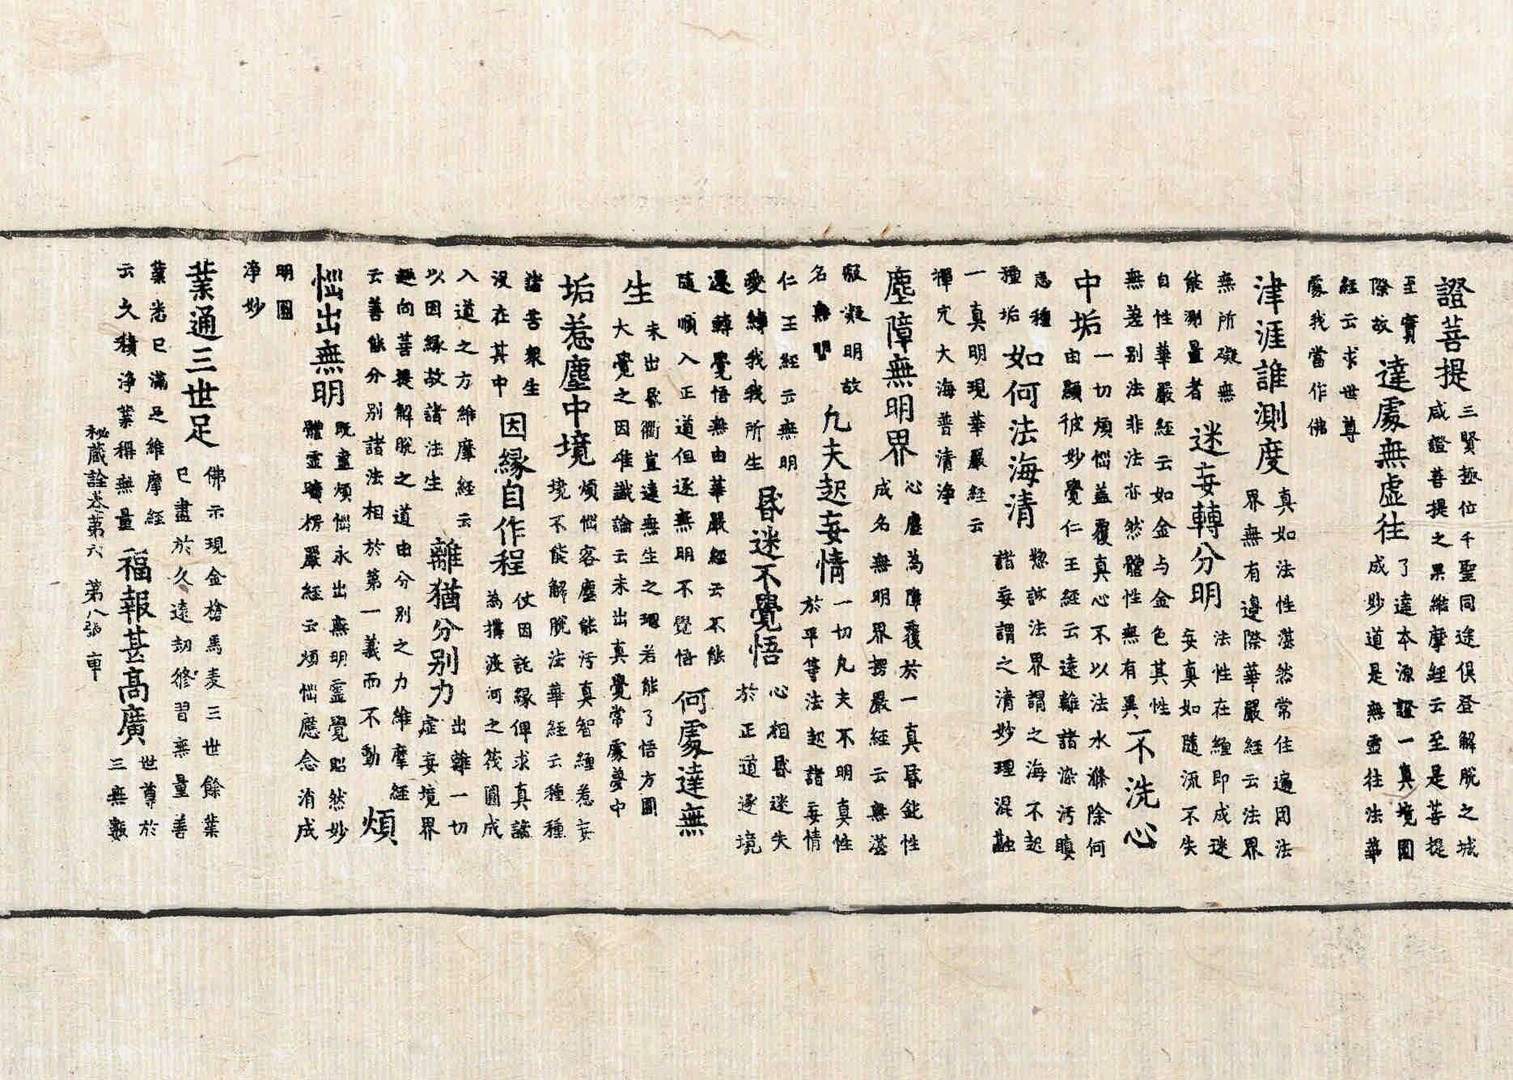 證菩提
三賢極位千聖同途俱登解脫之城
咸證菩提之果維摩經云至是菩提
至實
際故
達處無虛往
了達本源證一真境圓
成妙道是無虛往法華
經云求世尊
處我當作佛
津涯誰測度
真如法性湛然常住遍因法
界無有邊際華嚴經云法界
無所礙無
能測量者
迷妄轉分明
法性在纏即成迷
妄真如隨流不失
自性華嚴經云如金与金色其性
無差別法非法亦然體性無有異
不洗心
中垢
一切煩惱蓋覆真心不以法水滌除何
由顯彼妙覺仁王經云遠離諸染污瞋
恚種
種垢
如何法海清
惣該法界謂之海不起
諸妄謂之清妙理混融
一真明現華嚴經云
禪定大海普清淨
塵障無明界
心塵為障覆於一真昏鈍性
成名無明界楞嚴經云無湛
凝明故
名無明
凡夫起妄情
一切凡夫不明真性
於平等法起諸妄情
仁王經云無明
愛縛我我所生
昏迷不覺悟
心相昏迷失
於正道逐境
遷轉覺悟無由華嚴經云不能
隨順入正道但逐無明不覺悟
何處達無
生
未出昏衢豈達無生之理若能了悟方圓
大覺之因唯識論云未出真覺常處夢中
垢惹塵中境
煩惱客塵能污真智緾惹妄
境不能解脫法華經云種種
諸苦眾生
沒在其中
因緣自作程
仗因託緣俾求真諦
為攜渡河之筏圓成
入道之方維摩經云
以因緣故諸法生
離猶分別力
出離一切
虛妄境界
趣向菩提解脫之道由分別之力維摩經
云善能分別諸法相於第一義而不動
煩
惱出無明
既棄煩惱永出無明靈覺照然妙
體虛曠楞嚴經云煩惱應念消成
明圓
淨妙
業通三世足
佛示現金槍馬麦三世餘業
已盡於久遠劫修習無量善
業悉已滿足維摩經
云久積淨業稱無量
福報甚高廣
世尊於
三無數
秘藏詮卷第六 第八張 車